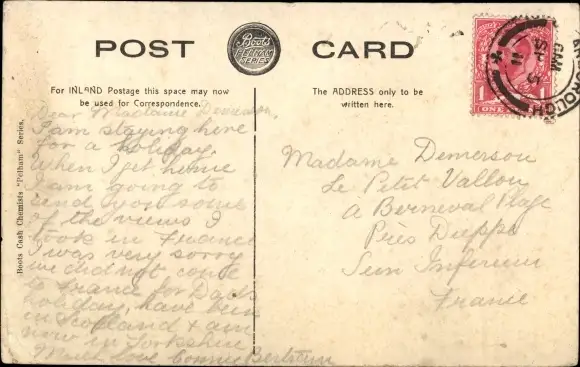 POST CARD
Boots
PELHAM
SERIES
For INLAND Postage this space may now
be used for Correspondence.
The ADDRESS only to be
written here.
Boots Cash Chemists "Pelham" Series.
Dear Madame Demerson,
I am staying here
for a holiday.
When I get home
I am going to
send you some
of the views I
took in France
I was very sorry
we did not come
to France for Dad's
holiday, have been
in Scotland & am
now in Yorkshire
Much love Connie
Madame Demerson
Le Petit Vallon
a Berneval Plage
Près Dieppe
Sein Inferieur
France
1 1
ONE
SP 5
11